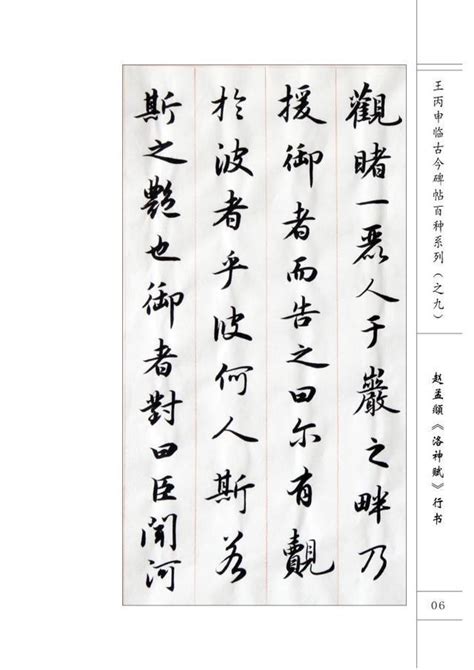 王丙申临古今碑帖百种系列（之九）
赵孟頫《洛神赋》行书
06
觀睹一麗人于巖之畔乃
援御者而告之曰尔有覿
於彼者乎彼何人斯若
斯之艷也御者對曰臣聞河